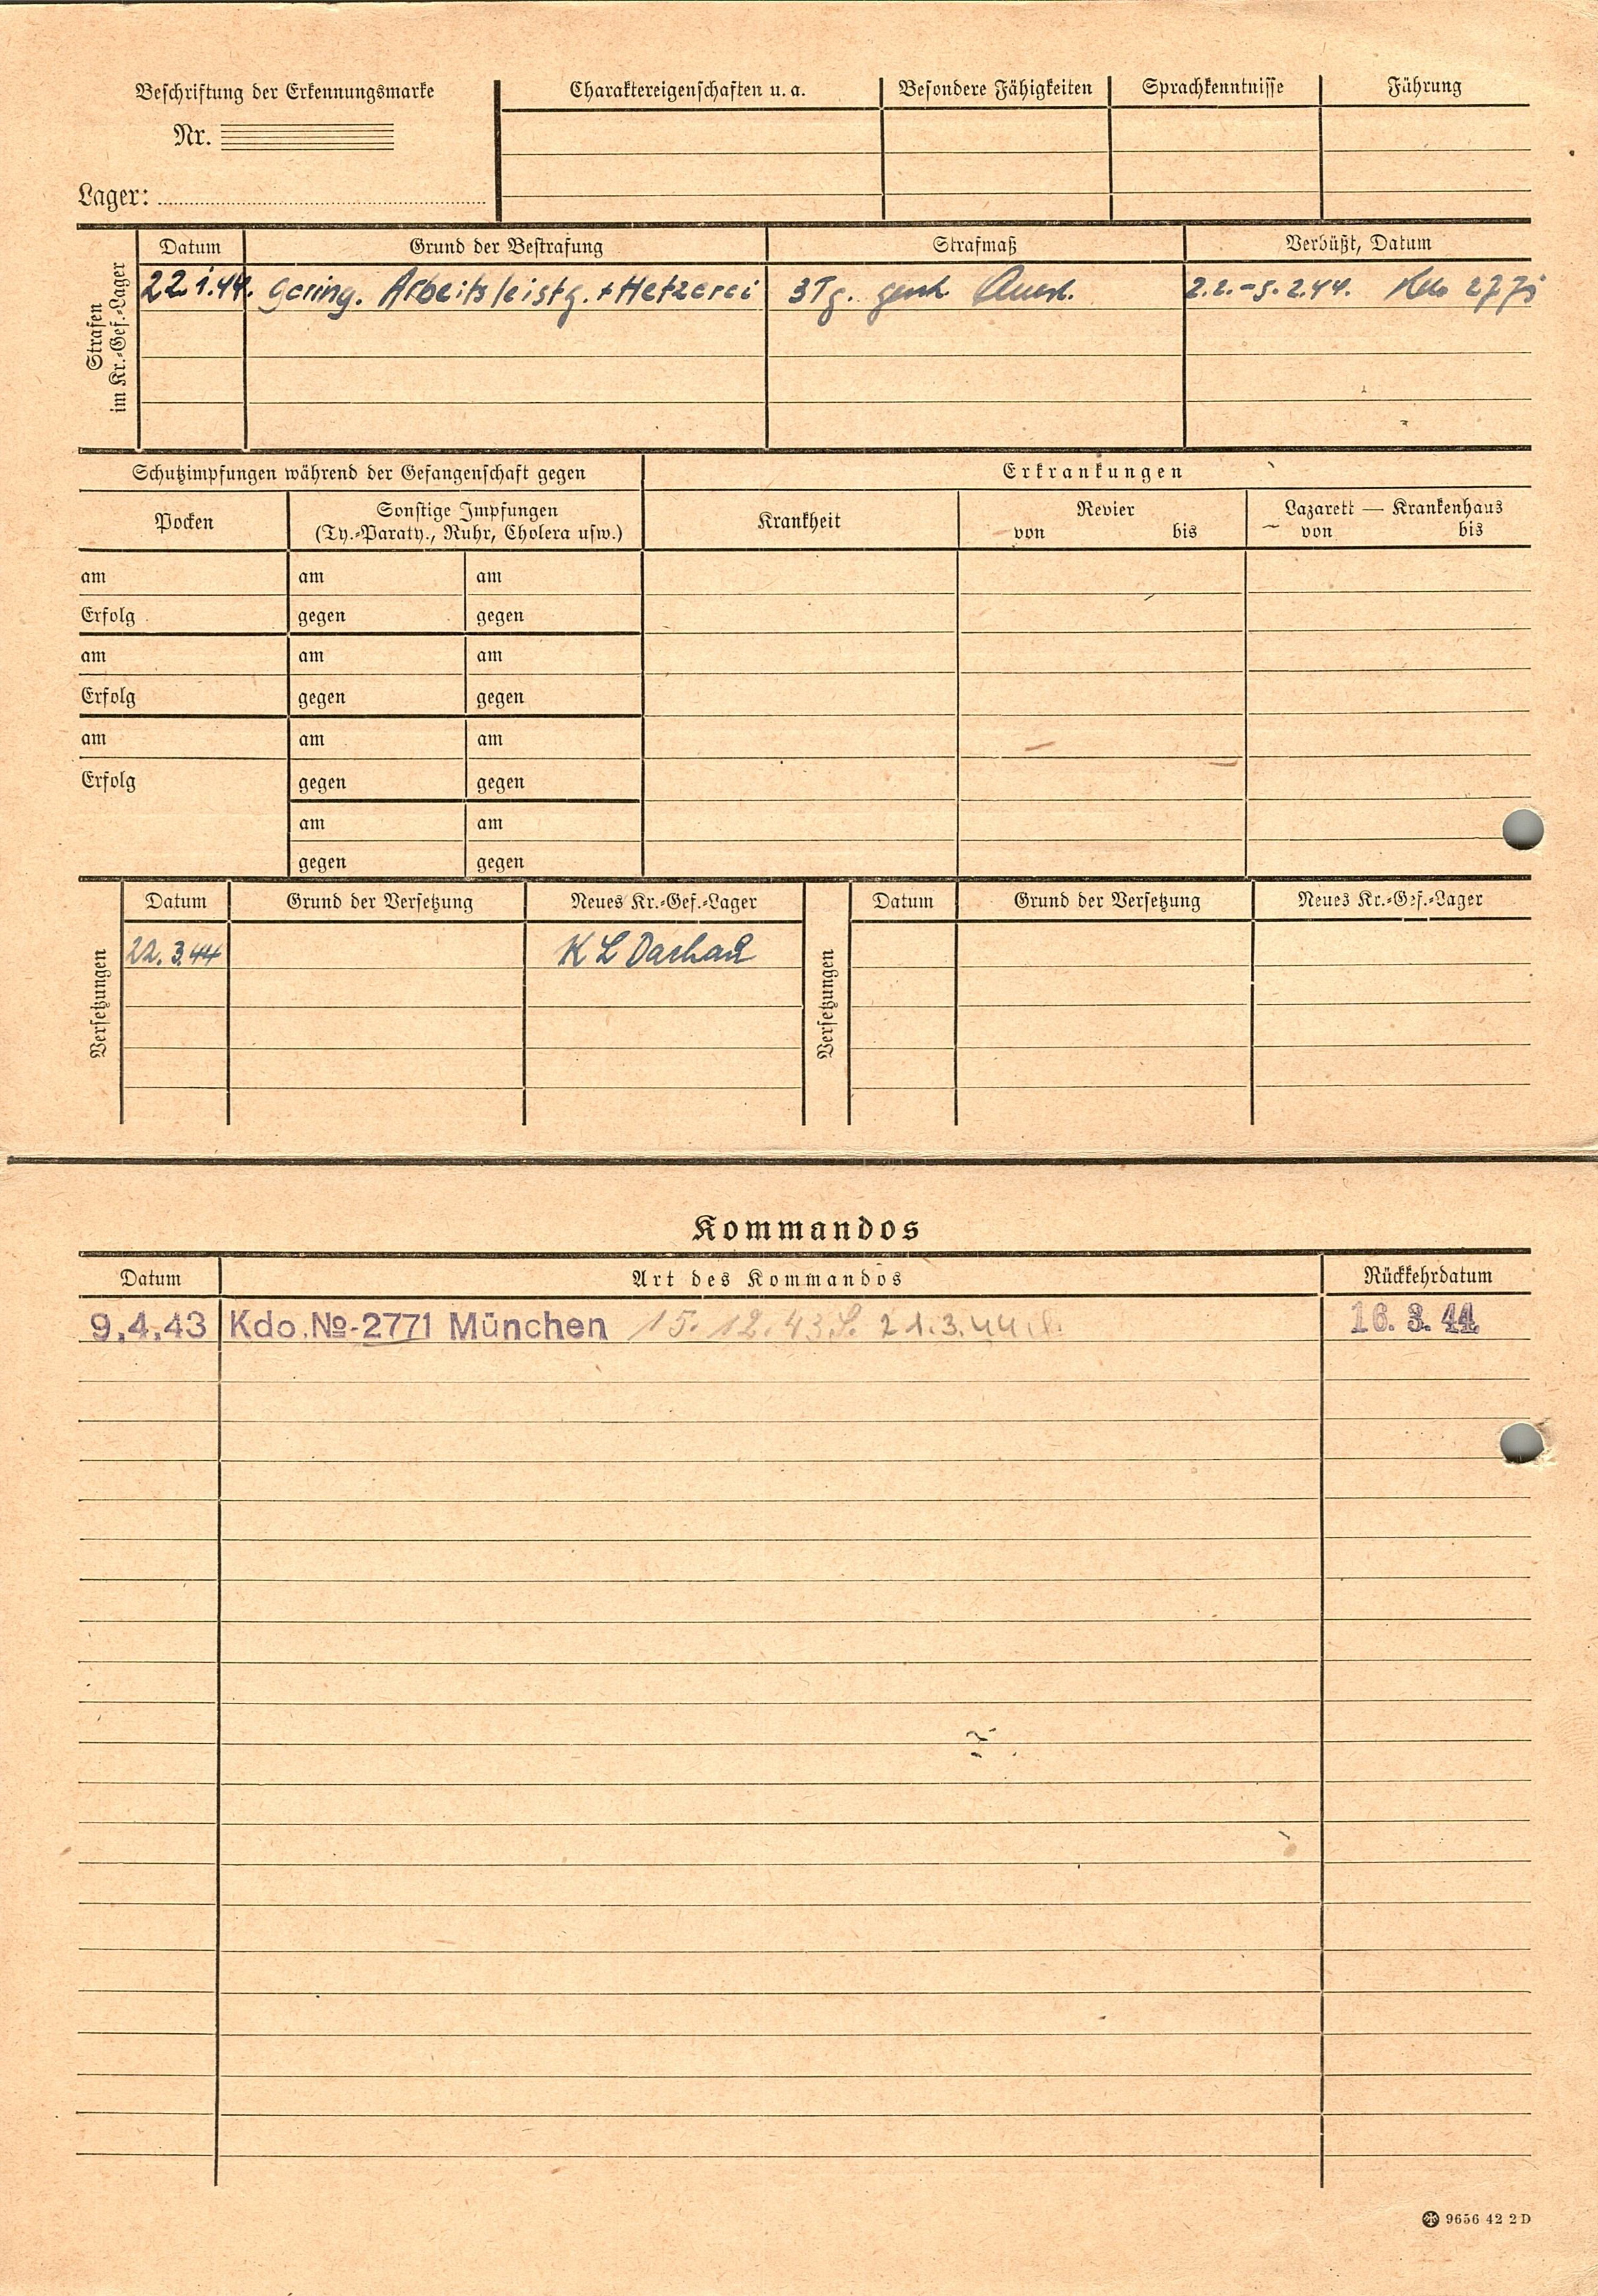 Beschriftung der Erkennungsmarke
Nr.
Lager:
Charaktereigenschaften u. a. Besondere Fähigkeiten Sprachkenntnisse Führung
Strafen
im Kr.-Gef.-Lager
Datum Grund der Bestrafung Strafmaß Verbüßt, Datum
22.1.44. gering. Arbeitsleistg. + Hetzerei 3 Tg. gesch. 2.2.-5.2.44.
Schutzimpfungen während der Gefangenschaft gegen Erkrankungen
Pocken Sonstige Impfungen
(Ty.-Paraty., Ruhr, Cholera usw.)
Krankheit Revier Lazarett — Krankenhaus
von bis von bis
am am am
Erfolg gegen gegen
am am am
Erfolg gegen gegen
am am am
Erfolg gegen gegen
am am
gegen gegen
Versetzungen
Datum Grund der Versetzung Neues Kr.-Gef.-Lager
22.3.44 KL Dachau
Versetzungen
Datum Grund der Versetzung Neues Kr.-Gef.-Lager
Kommandos
Datum Art des Kommandos Rückkehrdatum
9.4.43 Kdo.№-2771 München 15.12.43 21.3.44 16.3.44
9656 42 2 D